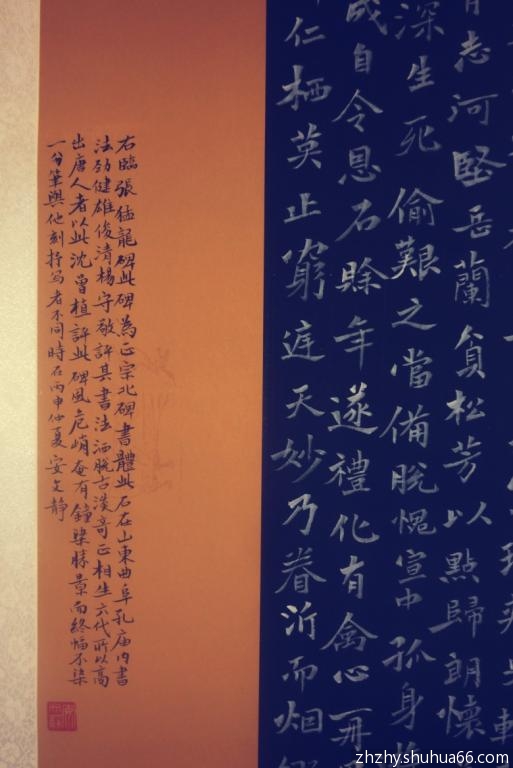 志河坚岳蘭貧松芳以點歸朗懷
深生死偷艱之當備脫愧宣中孤身
成自令恩石賒年遂禮化有禽心一
仁栖莫止窮庭天妙乃眷沂而烟
右臨張猛龍碑此碑為正宗北碑書體此石在山東曲阜孔庙内書
法劲健雄俊清楊守敬評其書法洒脫古淡奇正相生六代所以高
出唐人者以此沈曾植評此碑風危峭奄有鐘梁勝景而終幅不染
一分筆與他刻抒写者不同時在丙申仲夏安文静
zhzhyshuhua66.com